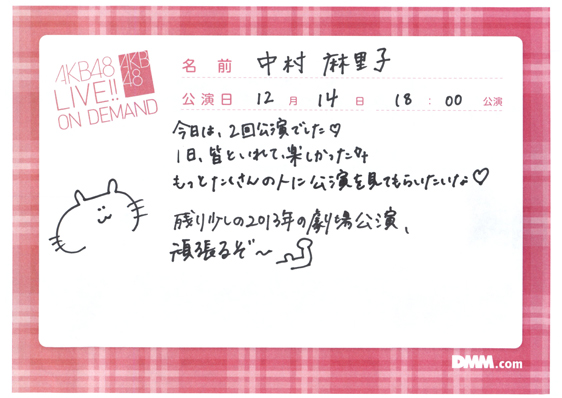 AKB48
LIVE!!
ON DEMAND
AKB
48
名前 中村 麻里子
公演日 12月 14日 18:00 公演
今日は、2回公演でした♡
1日、皆といれて、楽しかった
もっとたくさんの人に公演を見てもらいたいな♡
残り少しの2013年の劇場公演、
頑張るぞ〜
DMM.com